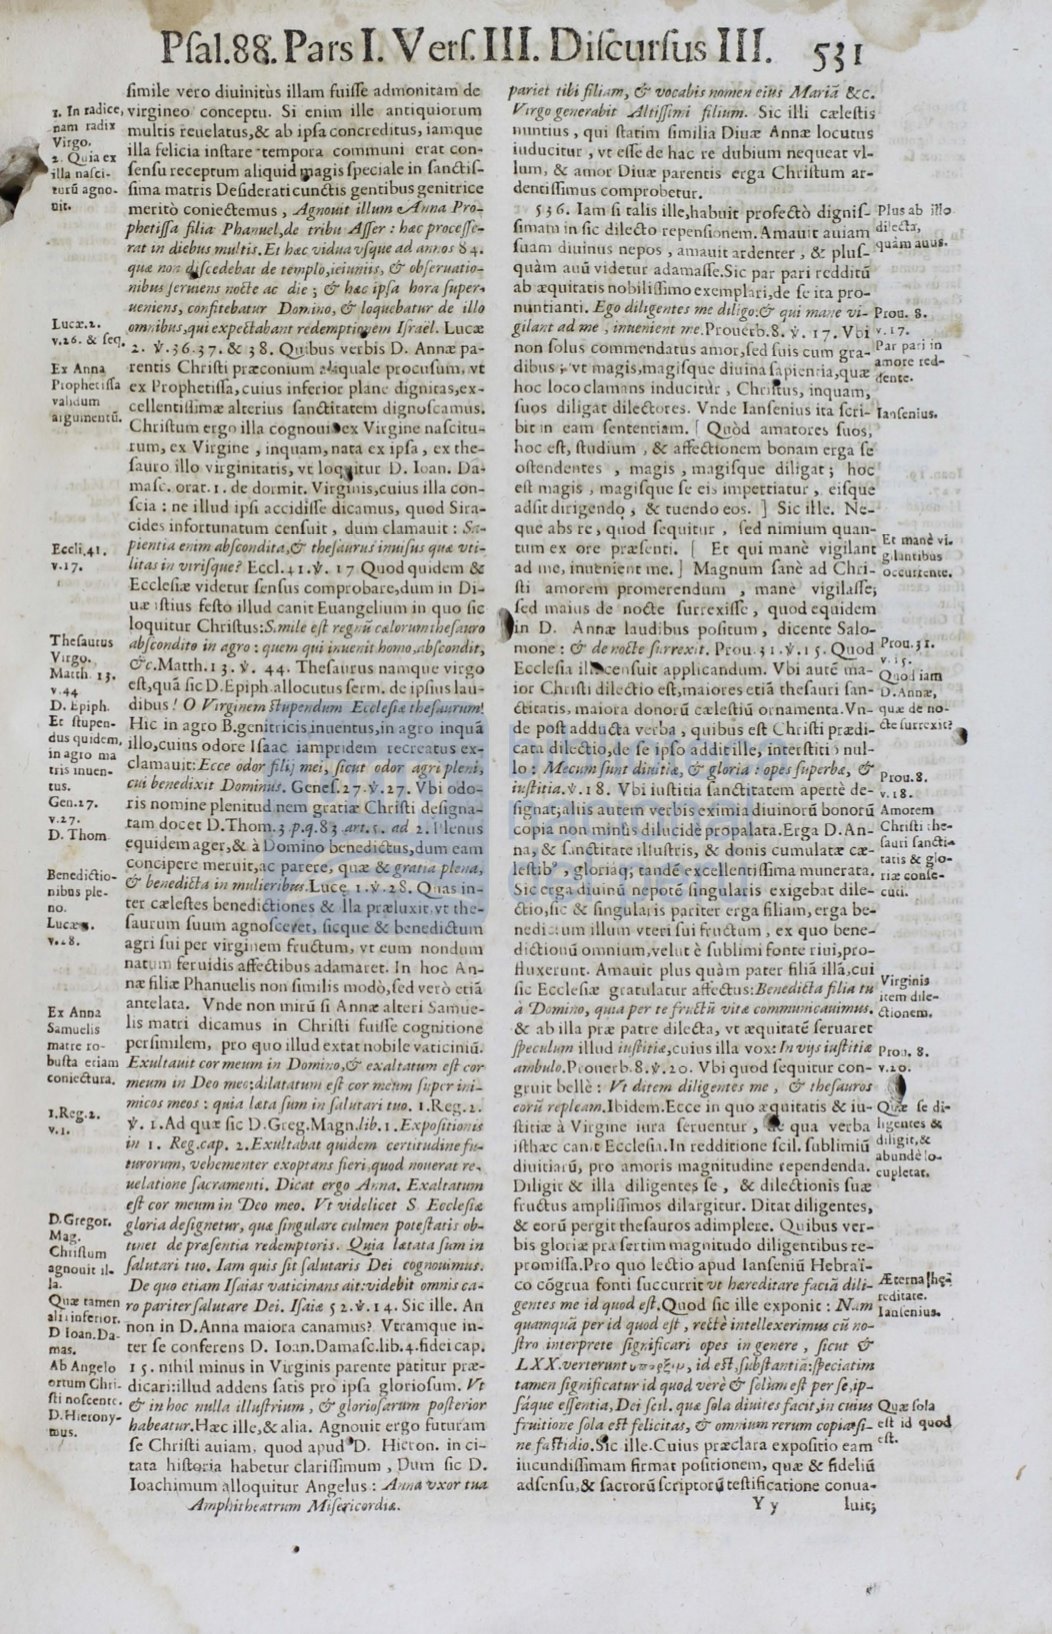 Pſal.88. Pars I. Verſ. III. Diſcurſus III. 531
ſimile vero diuinitùs illam fuiſſe admonitam de
virgineo conceptu. Si enim ille antiquiorum
multis reuelatus,& ab ipſa concreditus, iamque
illa felicia inſtare tempora communi erat con-
ſenſu receptum aliquid magis ſpeciale in ſanctiſ-
ſima matris Deſiderati cunctis gentibus genitrice
meritò coniectemus, Agnouit illum Anna Pro-
phetiſſa filia Phanuel,de tribu Aſſer : hæc proceſſe-
rat in diebus multis.Et hæc vidua vſque ad annos 84.
quæ non diſcedebat de templo,ieiuniis, & obſeruatio-
nibus ſeruiens nocte ac die ; & hæc ipſa hora ſuper-
ueniens, confitebatur Domino, & loquebatur de illo
omnibus,qui expectabant redemptionem Iſraël. Lucæ
2. ℣.36.37. & 38. Quibus verbis D. Annæ pa-
rentis Chriſti præconium æquale procuſum, vt
ex Prophetiſſa,cuius inferior planè dignitas,ex-
cellentiſſimæ alterius ſanctitatem dignoſcamus.
Chriſtum ergo illa cognouit ex Virgine naſcitu-
rum, ex Virgine , inquam, nata ex ipſa , ex the-
ſauro illo virginitatis, vt loquitur D. Ioan. Da-
maſc. orat. 1. de dormit. Virginis,cuius illa con-
ſcia : ne illud ipſi accidiſſe dicamus, quod Sira-
cides infortunatum cenſuit , dum clamauit : Sa-
pientia enim abſcondita,& theſaurus inuiſus quæ vti-
litas in vtriſque? Eccl.41.℣. 17 Quod quidem &
Eccleſiæ videtur ſenſus comprobare,dum in Di-
uæ iſtius feſto illud canit Euangelium in quo ſic
loquitur Chriſtus:Simile eſt regnũ cælorum theſauro
abſcondito in agro : quem qui inuenit homo,abſcondit,
&c.Matth.13. ℣. 44. Theſaurus namque virgo
eſt,quã ſic D.Epiph.allocutus ſerm. de ipſius lau-
dibus ! O Virginem ſtupendum Eccleſiæ theſaurum!
Hic in agro B.genitricis inuentus,in agro inquã
illo,cuius odore Iſaac iampridem recreatus ex-
clamauit: Ecce odor filij mei, ſicut odor agri pleni,
cui benedixit Dominus. Geneſ.27.℣.27. Vbi odo-
ris nomine plenitudinem gratiæ Chriſti deſigna-
tam docet D.Thom.3.p.q.83.art.5. ad 2.Plenus
equidem ager,& à Domino benedictus,dum eam
concipere meruit,ac parere, quæ & gratia plena,
& benedicta in mulieribus.Lucę 1.℣.28. Quas in-
ter cæleſtes benedictiones & illa præluxit,vt the-
ſaurum ſuum agnoſceret, ſicque & benedictum
agri ſui per virginem fructum, vt eum nondum
natum feruidis affectibus adamaret. In hoc An-
næ filiæ Phanuelis non ſimilis modò,ſed verò etiã
antelata. Vnde non mirũ ſi Annæ alteri Samue-
lis matri dicamus in Chriſti fuiſſe cognitione
perſimilem, pro quo illud extat nobile vaticiniũ.
Exultauit cor meum in Domino,& exaltatum eſt cor
meum in Deo meo:dilatatum eſt cor meum ſuper ini-
micos meos : quia læta ſum in ſalutari tuo. 1.Reg.2.
℣. 1.Ad quæ ſic D.Greg.Magn.lib.1.Expoſitionis
in 1. Reg.cap. 2.Exultabat quidem certitudine fu-
turorum, vehementer exoptans fieri,quod nouerat re-
uelatione ſacramenti. Dicat ergo Anna. Exaltatum
eſt cor meum in Deo meo. Vt videlicet S Eccleſiæ
gloria deſignetur, quæ ſingulare culmen poteſtatis ob-
tinet de præſentia redemptoris. Quia lætata ſum in
ſalutari tuo. Iam quis ſit ſalutaris Dei cognouimus.
De quo etiam Iſaias vaticinans ait:videbit omnis ca-
ro pariter ſalutare Dei. Iſaiæ 52.℣.14. Sic ille. An
non in D.Anna maiora canamus? Vtramque in-
ter ſe conferens D. Ioan.Damaſc.lib.4.fidei cap.
15. nihil minus in Virginis parente patitur præ-
dicari:illud addens ſatis pro ipſa glorioſum. Vt
& in hoc nulla illuſtrium , & glorioſarum poſterior
habeatur.Hæc ille,& alia. Agnouit ergo futuram
ſe Chriſti auiam, quod apud D. Hieron. in ci-
tata hiſtoria habetur clariſſimum , Dum ſic D.
Ioachimum alloquitur Angelus : Anna vxor tua
Amphitheatrum Miſericordiæ.
1. In radice,
nam radix
Virgo.
2. Quia ex
illa naſci-
turũ agno-
uit.
Lucæ.2.
v.26. & ſeq.
Ex Anna
Prophetiſſa
validum
argumentũ.
Eccli.41.
v.17.
Theſaurus
Virgo.
Matth. 13.
v.44
D. Epiph.
Et ſtupen-
dus quidem,
in agro ma
tris inuen-
tus.
Gen.27.
v.27.
D. Thom
Benedictio-
nibus ple-
no.
Lucæ
v.28.
Ex Anna
Samuelis
matre ro-
buſta etiam
coniectura.
1.Reg.2.
v.1.
D.Gregor.
Mag.
Chriſtum
agnouit il-
la.
Quæ tamen
alii inferior.
D Ioan.Da-
mas.
Ab Angelo
ortum Chri-
ſti noſcente.
D.Hierony-
mus.
pariet tibi filiam, & vocabis nomen eius Mariã &c.
Virgo generabit Altiſſimi filium. Sic illi cæleſtis
nuntius , qui ſtatim ſimilia Diuæ Annæ locutus
inducitur , vt eſſe de hac re dubium nequeat vl-
lum, & amor Diuæ parentis erga Chriſtum ar-
dentiſſimus comprobetur.
536. Iam ſi talis ille,habuit profectò digniſ-
ſimam in ſic dilecto repenſionem. Amauit auiam
ſuam diuinus nepos , amauit ardenter , & pluſ-
quàm auũ videtur adamaſſe.Sic par pari redditũ
ab æquitatis nobiliſſimo exemplari,de ſe ita pro-
nuntianti. Ego diligentes me diligo:& qui mane vi-
gilant ad me , inuenient me.Prouerb.8. ℣. 17. Vbi
non ſolus commendatus amor,ſed ſuis cum gra-
dibus ; vt magis,magiſque diuina ſapientia,quæ
hoc loco clamans inducitùr , Chriſtus, inquam,
ſuos diligat dilectores. Vnde Ianſenius ita ſcri-
bit in eam ſententiam. [ Quòd amatores ſuos,
hoc eſt, ſtudium , & affectionem bonam erga ſe
oſtendentes , magis , magiſque diligat ; hoc
eſt magis , magiſque ſe eis impertiatur , eiſque
adſit dirigendo , & tuendo eos. ] Sic ille. Ne-
que abs re , quod ſequitur , ſed nimium quan-
tum ex ore præſenti. [ Et qui manè vigilant
ad me, inuenient me. ] Magnum ſanè ad Chri-
ſti amorem promerendum , manè vigilaſſe;
ſed maius de nocte ſurrexiſſe , quod equidem
in D. Annæ laudibus poſitum , dicente Salo-
mone : & de nocte ſurrexit. Prou.31.℣.15. Quod
Eccleſia illi cenſuit applicandum. Vbi autẽ ma-
ior Chriſti dilectio eſt,maiores etiã theſauri ſan-
ctitatis, maiora donorũ cæleſtiũ ornamenta.Vn-
de poſt adducta verba , quibus eſt Chriſti prædi-
cata dilectio,de ſe ipſo addit ille, interſtitio nul-
lo : Mecum ſunt diuitiæ, & gloria : opes ſuperbæ, &
iuſtitia.℣.18. Vbi iuſtitia ſanctitatem apertè de-
ſignat;aliis autem verbis eximia diuinorũ bonorũ
copia non minùs dilucidè propalata.Erga D.An-
na, & ſanctitate illuſtris, & donis cumulatæ cæ-
leſtibꝰ , gloriáq; tandẽ excellentiſſima munerata.
Sic erga diuinũ nepotẽ ſingularis exigebat dile-
ctio,ſic & ſingularis pariter erga filiam,erga be-
nedictum illum vteri ſui fructum , ex quo bene-
dictionũ omnium,velut è ſublimi fonte riui,pro-
fluxerunt. Amauit plus quàm pater filiã illã,cui
ſic Eccleſiæ gratulatur affectus:Benedicta filia tu
à Domino, quia per te fructũ vitæ communicauimus.
& ab illa præ patre dilecta, vt æquitatẽ ſeruaret
ſpeculum illud iuſtitiæ,cuius illa vox:In vijs iuſtitiæ
ambulo.Prouerb.8.℣.20. Vbi quod ſequitur con-
gruit bellè : Vt ditem diligentes me , & theſauros
eorũ repleam.Ibidem.Ecce in quo æquitatis & iu-
ſtitiæ à Virgine iura ſeruentur , de qua verba
iſthæc canit Eccleſia.In redditione ſcil. ſublimiũ
diuitiarũ, pro amoris magnitudine rependenda.
Diligit & illa diligentes ſe , & dilectionis ſuæ
fructus ampliſſimos dilargitur. Ditat diligentes,
& eorũ pergit theſauros adimplere. Quibus ver-
bis gloriæ præſertim magnitudo diligentibus re-
promiſſa.Pro quo lectio apud Ianſeniũ Hebraï-
co cõgrua fonti ſuccurrit vt hæreditare faciã dili-
gentes me id quod eſt,Quod ſic ille exponit : Nam
quamquã per id quod eſt , rectè intellexerimus cũ no-
ſtro interprete ſignificari opes in genere , ſicut &
LXX.verterunt ὕπαρξιν, id eſt,ſubſtantiã:ſpeciatim
tamen ſignificatur id quod verè & ſolùm eſt per ſe,ip-
ſáque eſſentia,Dei ſcil. quæ ſola diuites facit,in cuius
fruitione ſola eſt felicitas, & omnium rerum copia ſi-
ne faſtidio.Sic ille.Cuius præclara expoſitio eam
iucundiſſimam firmat poſitionem, quæ & fideliũ
adſenſu,& ſacrorũ ſcriptorũ teſtificatione conua-
Y y luit;
Plus ab illo
dilecta,
quàm auus.
Prou. 8.
v.17.
Par pari in
amore red-
dente.
Ianſenius.
Et manè vi-
gilantibus
occurrente.
Prou.31.
v.15.
Quod iam
D.Annæ,
quæ de no-
cte ſurrexit?
Prou.8.
v.18.
Amorem
Chriſti the-
ſauri ſancti-
tatis & glo-
riæ conſe-
cuti.
Virginis
item dile-
ctionem.
Prou. 8.
v.20.
Quæ ſe di-
ligentes &
diligit,&
abundè lo-
cupletat.
Æterna hę-
reditate.
Ianſenius.
Quæ ſola
eſt id quod
eſt.